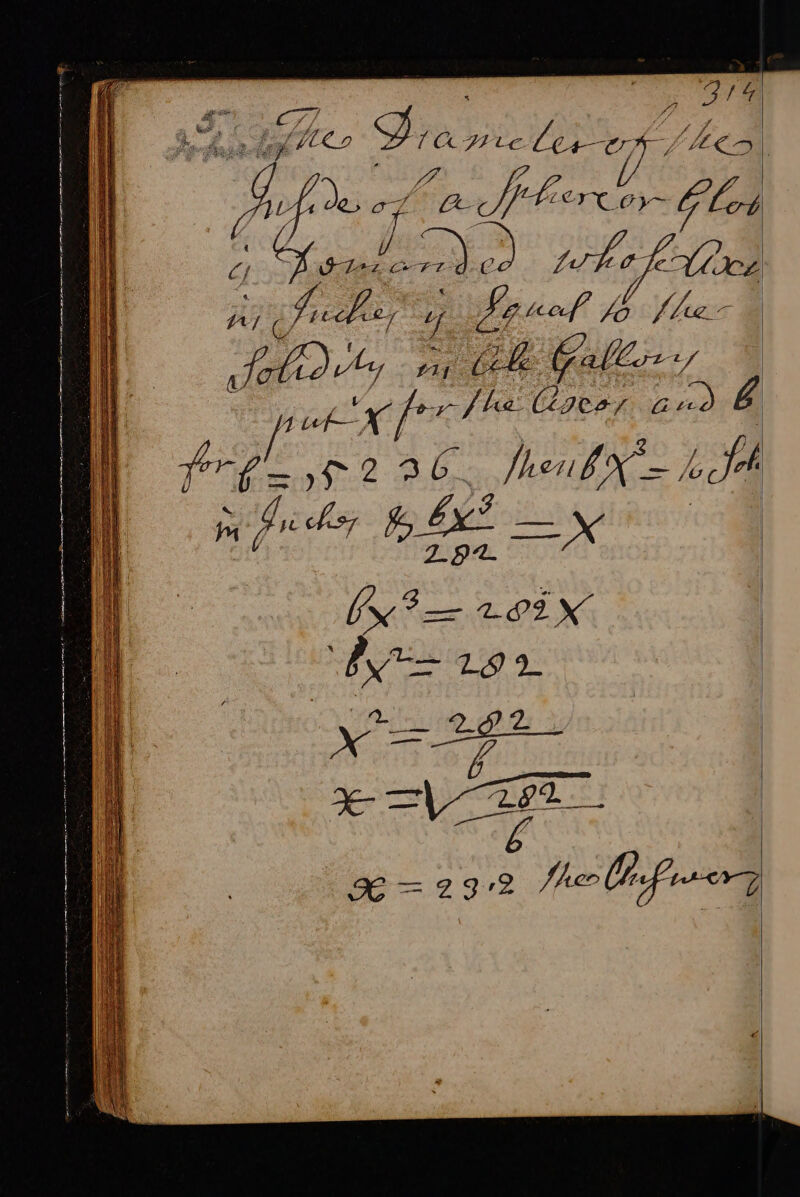 314
The Diameter of the
Inside of a Sphere or Glob
is Demanded whose Axes
in Inches is Equal to the
Solidity in Ale Gallons
put x for the Axes, and b
for b = ,5236 then bx³ = to Sol
in Inches & bx³/282 = x
bx³ = 282x
bx² = 282
x² = 282/b
x = √282/b
x = 23.2 the Answer